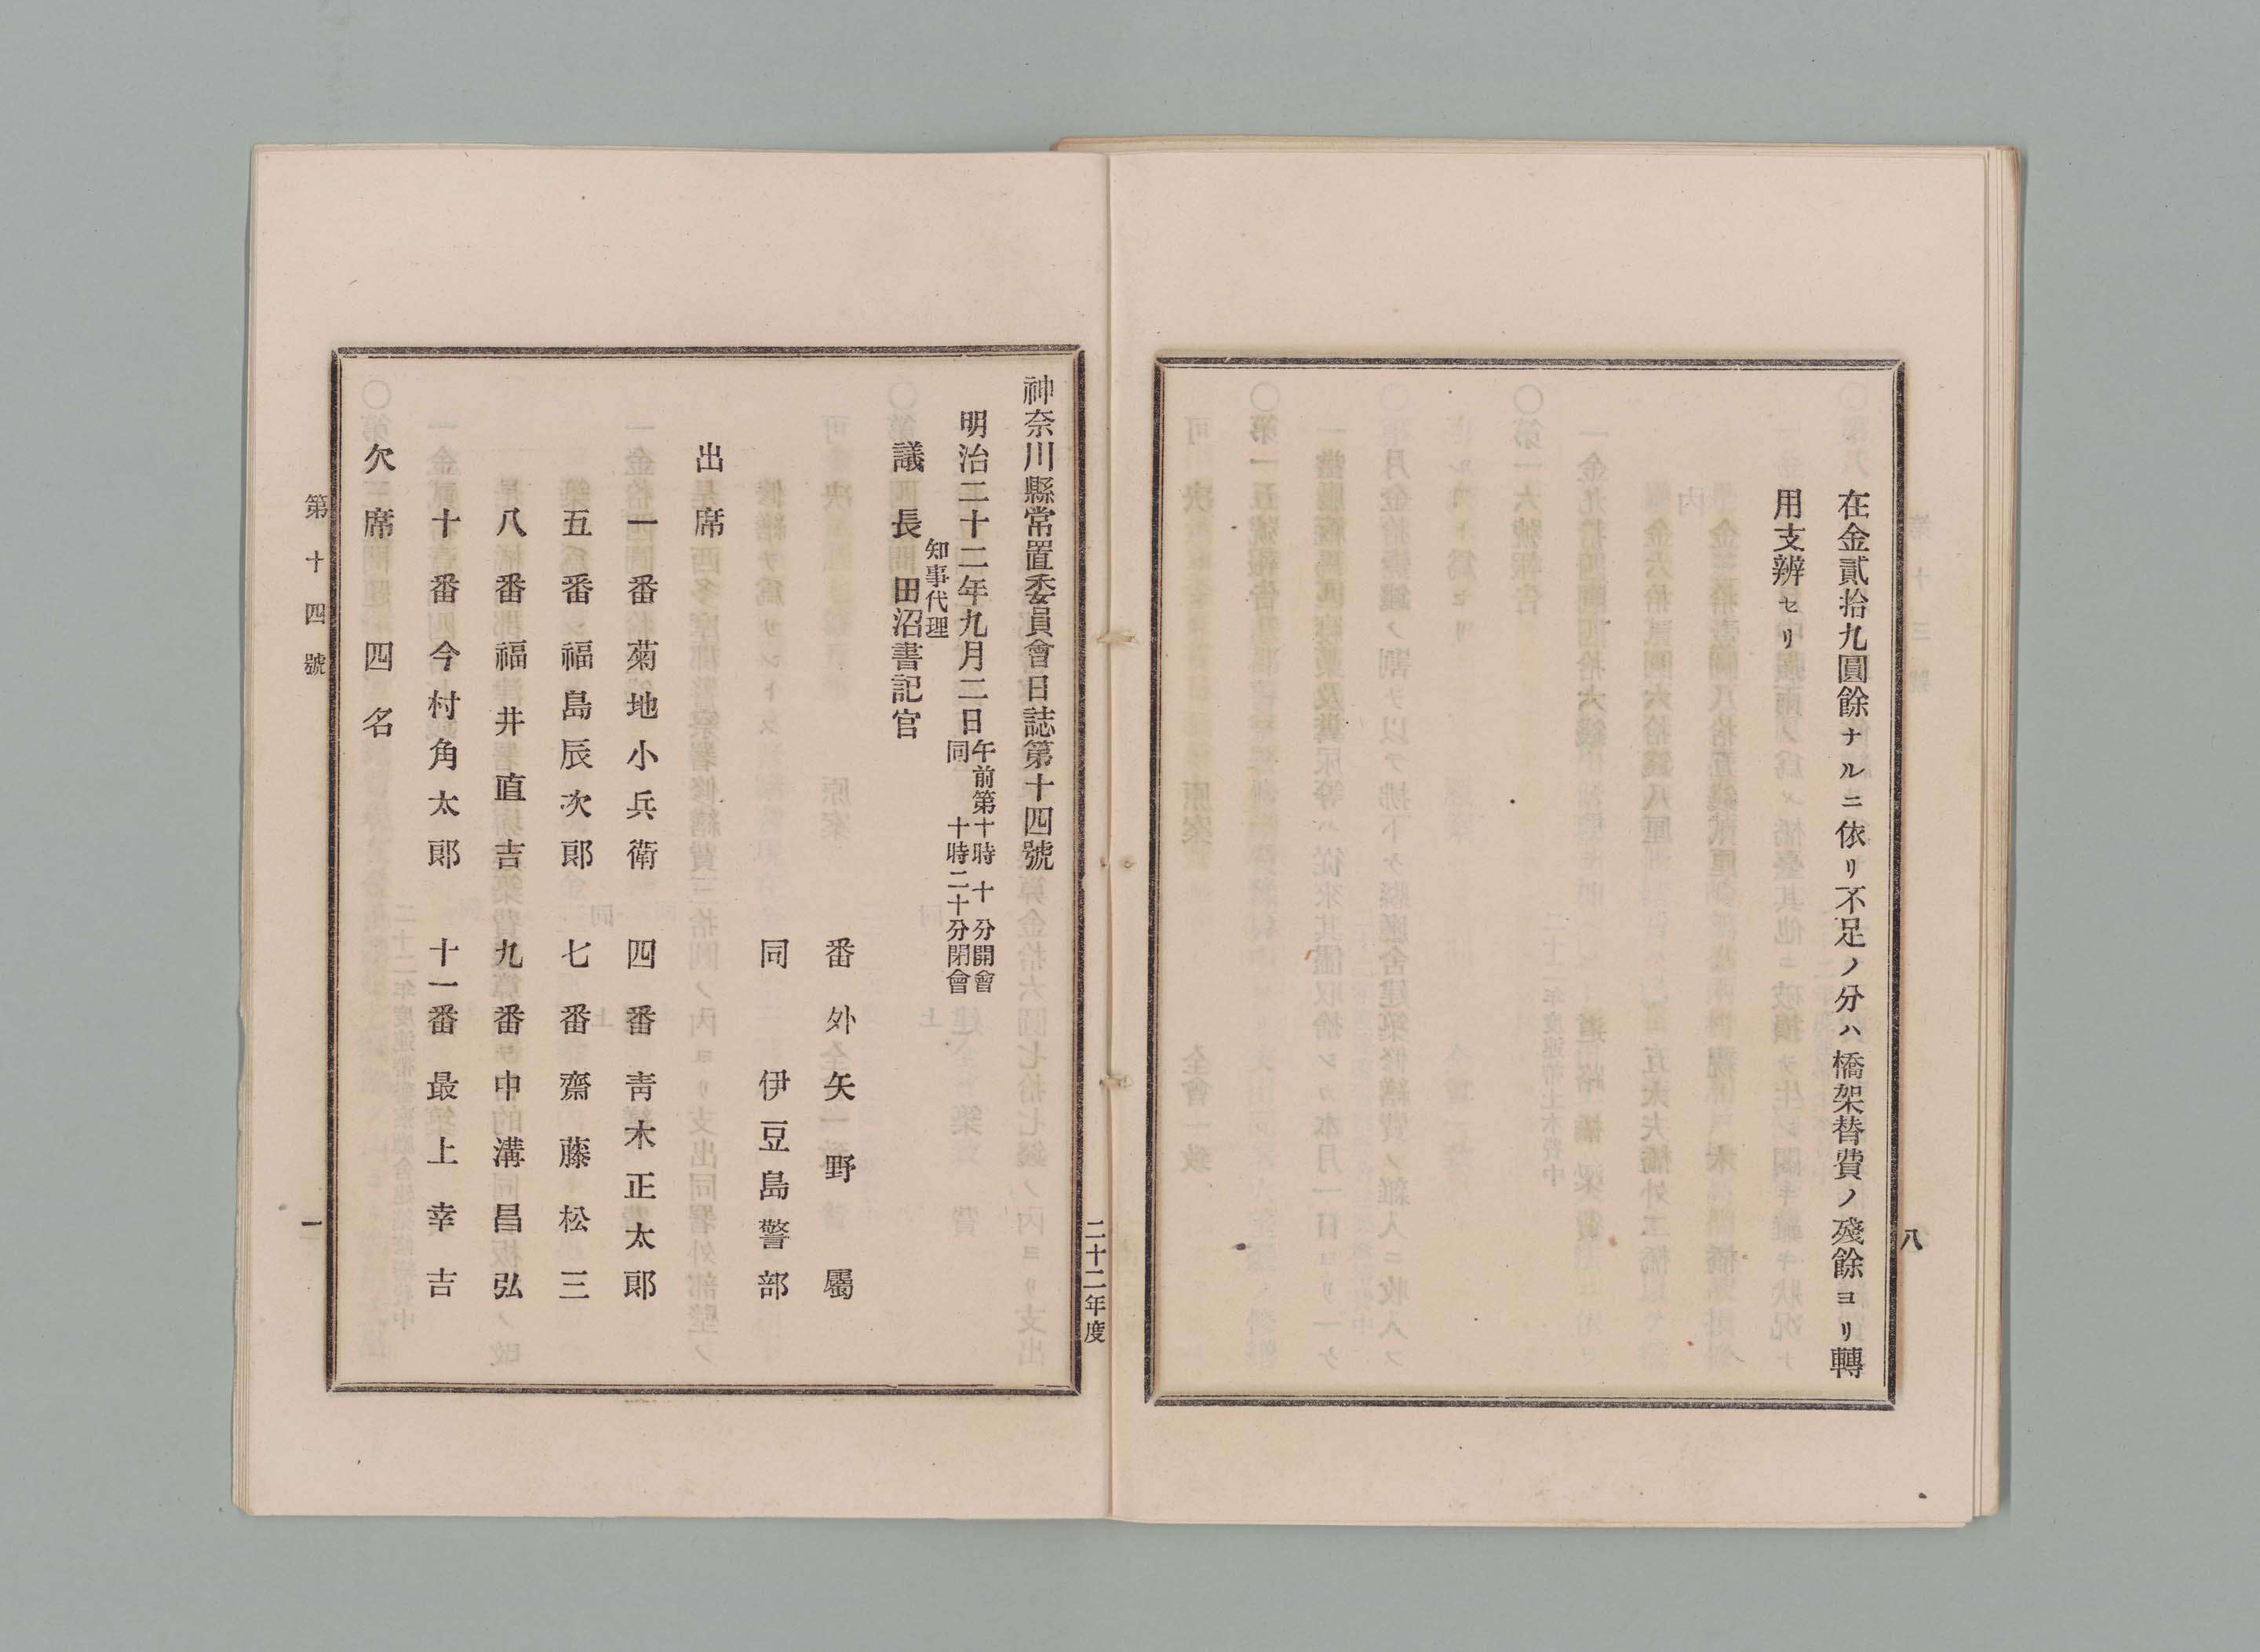 八
在金貳拾九圓餘ナルニ依リ不足ノ分ハ橋架替費ノ殘餘ヨリ轉
用支辨セリ
二十二年度
神奈川縣常置委員會日誌第十四號
明治二十二年九月二日
午前第十時十分開會
同十時二十分閉會
知事代理
議長 田沼書記官
番外矢野屬
同 伊豆島警部
出席
一番 菊地小兵衛 四番 靑木正太郎
五番 福島辰次郎 七番 齋藤松三
八番 福井直吉 九番 中溝昌弘
十番 今村角太郎 十一番 最上幸吉
欠席 四名
第十四號
一